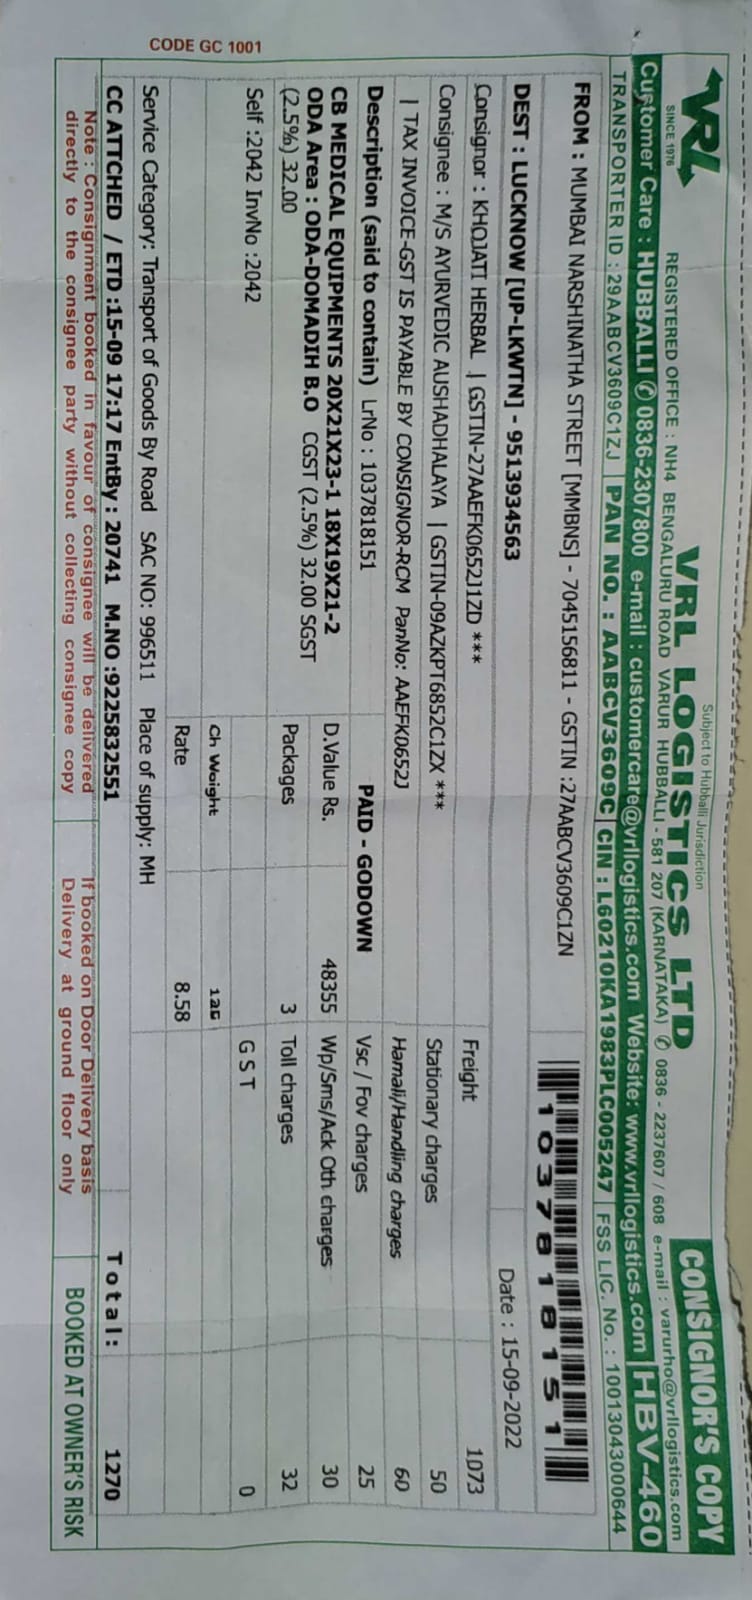 Subject to Hubballi Jurisdiction
VRL
SINCE 1976
VRL LOGISTICS LTD
CONSIGNOR'S COPY
REGISTERED OFFICE : NH4 BENGALURU ROAD VARUR HUBBALLI - 581 207 (KARNATAKA) ✆ 0836 - 2237607 / 608 e-mail : varurho@vrllogistics.com
Customer Care : HUBBALLI ✆ 0836-2307800 e-mail : customercare@vrllogistics.com Website: www.vrllogistics.com HBV-460
TRANSPORTER ID : 29AABCV3609C1ZJ | PAN NO. : AABCV3609C | CIN : L60210KA1983PLC005247 | FSS LIC. No. : 10013043000644
FROM : MUMBAI NARSHINATHA STREET [MMBNS] - 7045156811 - GSTIN :27AABCV3609C1ZN
1037818151
DEST : LUCKNOW [UP-LKWTN] - 9513934563
Date : 15-09-2022
Consignor : KHOJATI HERBAL | GSTIN-27AAEFK0652J1ZD ***
Freight 1073
Consignee : M/S AYURVEDIC AUSHADHALAYA | GSTIN-09AZKPT6852C1ZX ***
Stationary charges 50
| TAX INVOICE-GST IS PAYABLE BY CONSIGNOR-RCM PanNo: AAEFK0652J
Hamali/Handling charges 60
Description (said to contain) LrNo : 1037818151
PAID - GODOWN
Vsc / Fov charges 25
CB MEDICAL EQUIPMENTS 20X21X23-1 18X19X21-2
D.Value Rs. 48355
Wp/Sms/Ack Oth charges 30
ODA Area : ODA-DOMADIH B.O CGST (2.5%) 32.00 SGST
Packages 3
Toll charges 32
(2.5%) 32.00
Self :2042 InvNo :2042
G S T 0
Ch Weight
Rate 8.58
Service Category: Transport of Goods By Road SAC NO: 996511 Place of supply: MH
CC ATTCHED / ETD :15-09 17:17 EntBy : 20741 M.NO :9225832551
Total: 1270
Note : Consignment booked in favour of consignee will be delivered
directly to the consignee party without collecting consignee copy
If booked on Door Delivery basis
Delivery at ground floor only
BOOKED AT OWNER'S RISK
CODE GC 1001